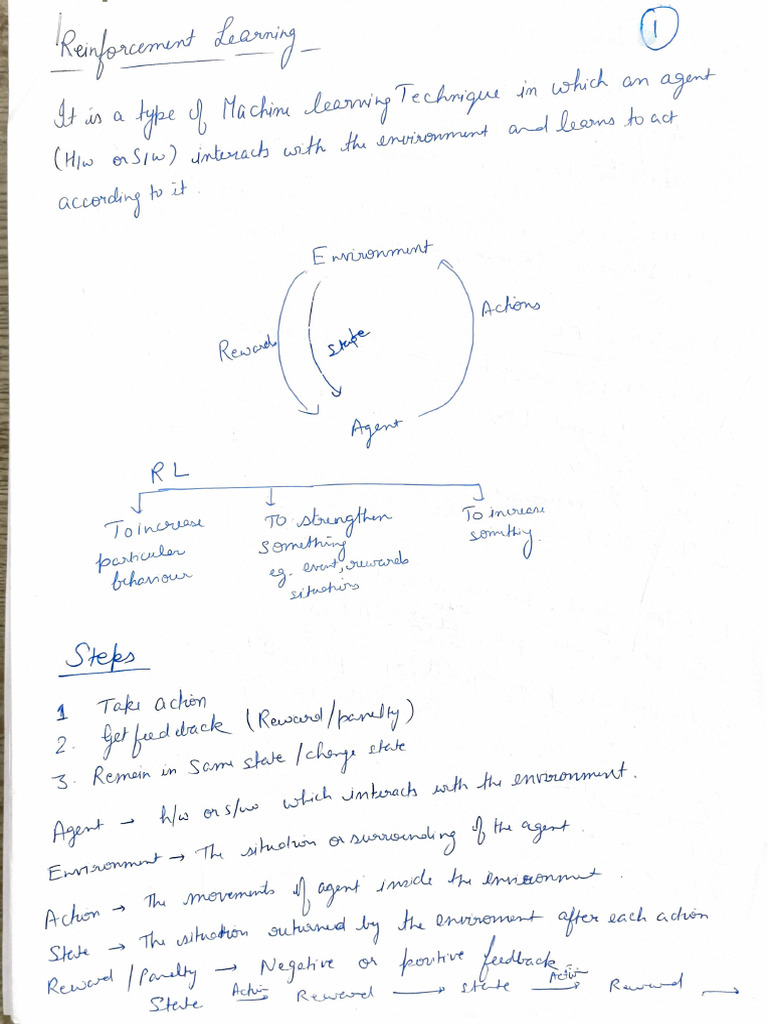 Reinforcement Learning
1
It is a type of Machine learning Technique in which an agent
(H/w or S/w) interacts with the environment and learns to act
according to it.
Environment
Actions
Reward
State
Agent
RL
To increase
particular
behaviour
To strengthen
something
eg. event, rewards
situations
To increase
something.
Steps
1 Take action
2. Get feedback (Reward/panelty)
3. Remain in same state/change state
Agent → h/w or s/w which interacts with the environment.
Environment → The situation or surrounding of the agent.
Action → The movements of agent inside the environment.
State → The situation returned by the enviroment after each action
Reward/Panelty → Negative or positive feedback.
State Action → Reward → state Action → Reward →